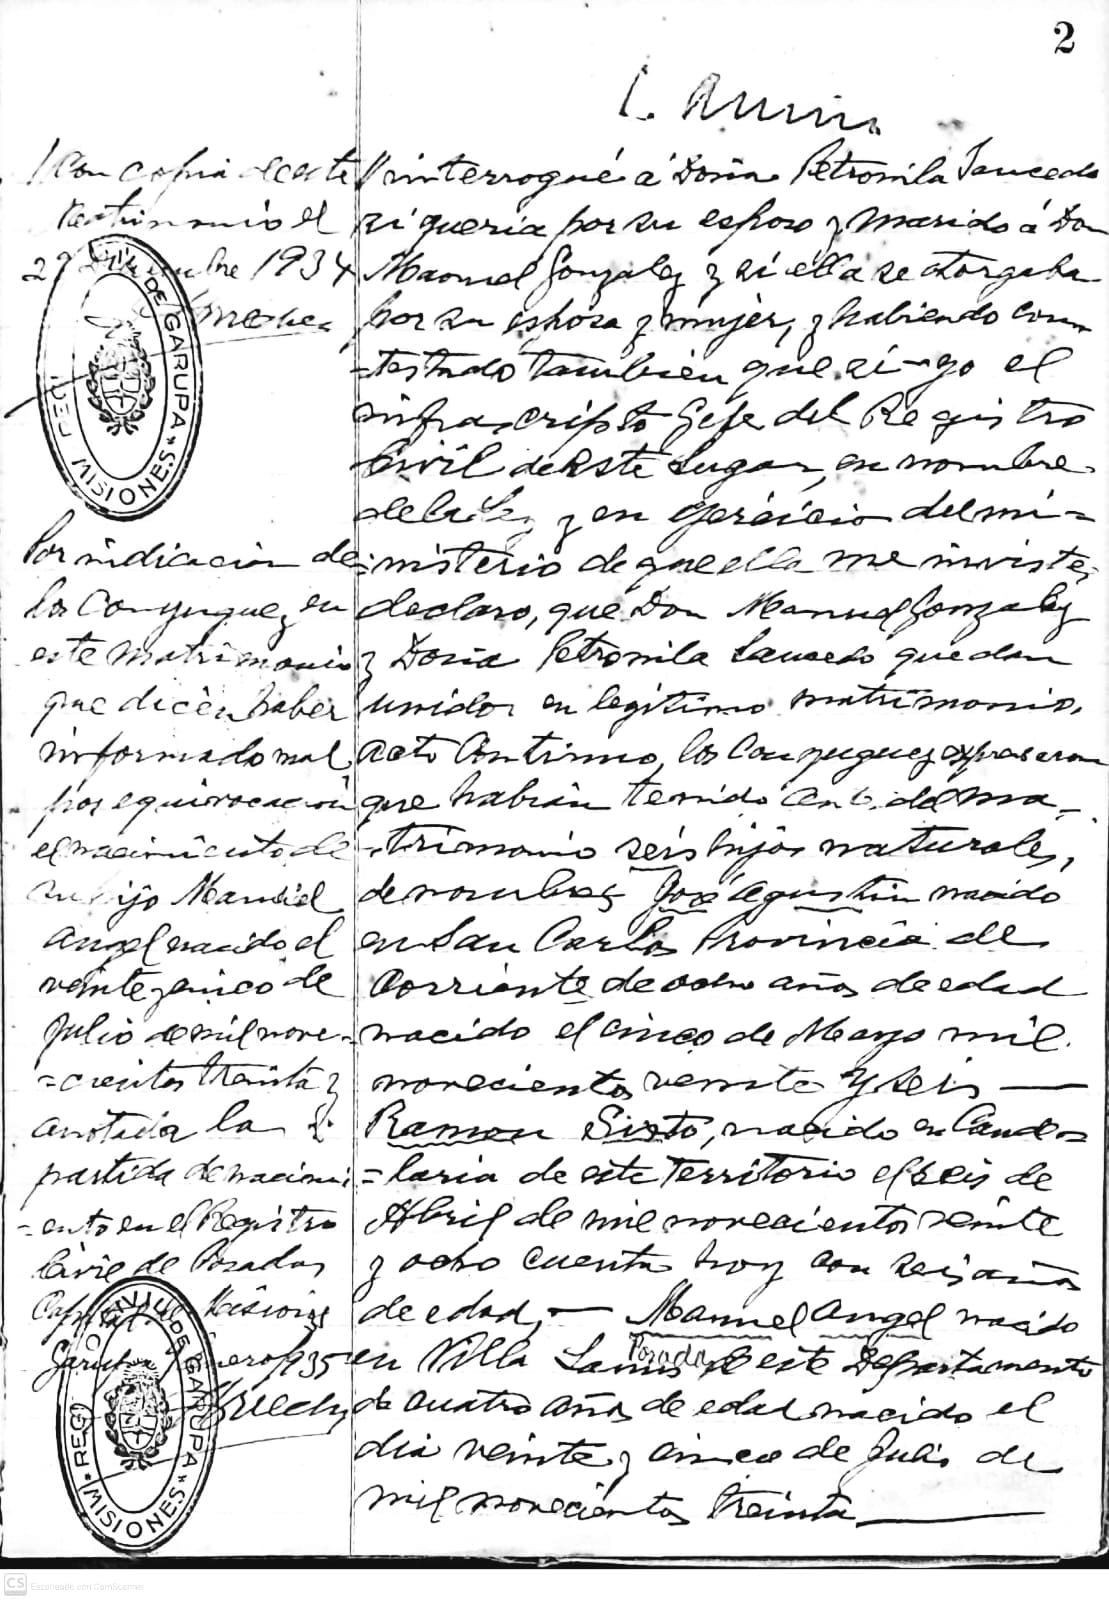 2
Con copia de este
testimonio el
27 Diciembre 1934
REGISTRO CIVIL DE GARUPA
MISIONES
Por indicacion de
los Conyuguez en
este matrimonio
que dicen haber
informado mal
por equivocacion
el nacimiento de
su hijo Manuel
Angel nacido el
veinte y cinco de
Julio de mil nove-
=cientos treinta y
anotada la
partida de nacimi
=ento en el Registro
Civil de Posadas
Capital de Misiones
Garupa Enero 1935
REGISTRO CIVIL DE GARUPA
MISIONES
interrogué á Doña Petronila Saucedo
si queria por su esposo y marido á Don
Manuel Gonzalez y si élla se otorgaba
por su esposa y mujer, y habiendo con-
=testado tambien que si - yo el
infrascripto Gefe del Registro
Civil de este Lugar, en nombre
de la Ley y en ejercicio del mi=
=nisterio de que ella me inviste,
declaro, que Don Manuel Gonzalez
y Doña Petronila Saucedo quedan
unidos en legitimo matrimonio,
acto continuo, los Conyuguez expresaron
que habian tenido antes del ma-
=trimonio seis hijos naturales,
de nombres José Agustin nacido
en San Carlos Provincia de
Corriente de ocho años de edad
nacido el cinco de Mayo mil
novecientos veinte y seis —
Ramon Sixto, nacido en Cande=
=laria de este territorio el seis de
Abril de mil novecientos veinte
y ocho cuenta hoy con seis años
de edad, — Manuel Angel nacido
en Villa Lanus Posadas de este Departamento
de cuatro años de edad nacido el
dia veinte y cinco de Julio de
mil novecientos treinta —
CS Escaneado con CamScanner